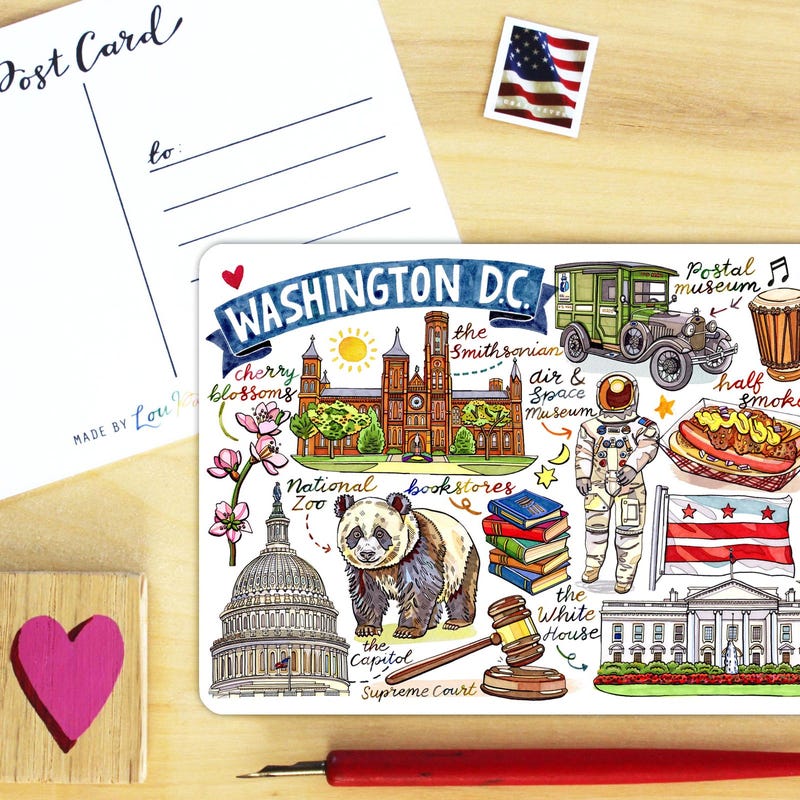 Post Card
to:
MADE BY Lou
WASHINGTON D.C.
the
Smithsonian
Postal
museum
cherry
blossoms
air &
Space
Museum
half
smoke
National
Zoo
bookstores
the
White
House
the
Capitol
Supreme Court